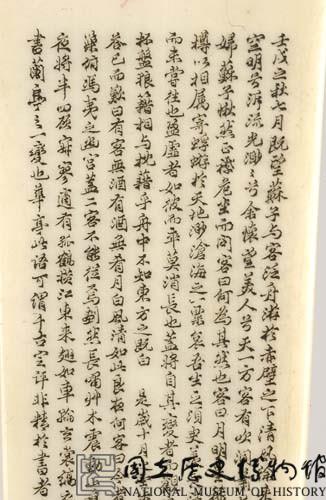 壬戌之秋七月既望蘇子與客泛舟游於赤壁之下清風
空明兮泝流光渺渺兮余懷望美人兮天一方客有吹洞
婦蘇子愀然正襟危坐而問客曰何為其然也客曰月明
樽以相屬寄蜉蝣於天地渺滄海之一粟哀吾生之須臾
而未嘗往也盈虛者如彼而卒莫消長也蓋將自其變者而觀
杯盤狼籍相與枕藉乎舟中不知東方之既白 是歲十月
答已而歎曰有客無酒有酒無肴月白風清如此良夜何客曰今
巢俯馮夷之幽宮蓋二客不能從焉劃然長嘯草木震
夜將半四顧寂寥適有孤鶴橫江東來翅如車輪玄裳縞
書蘭亭之一變也華亭此語可謂千古定評非精於書者
國立歷史博物館
NATIONAL MUSEUM OF HISTORY